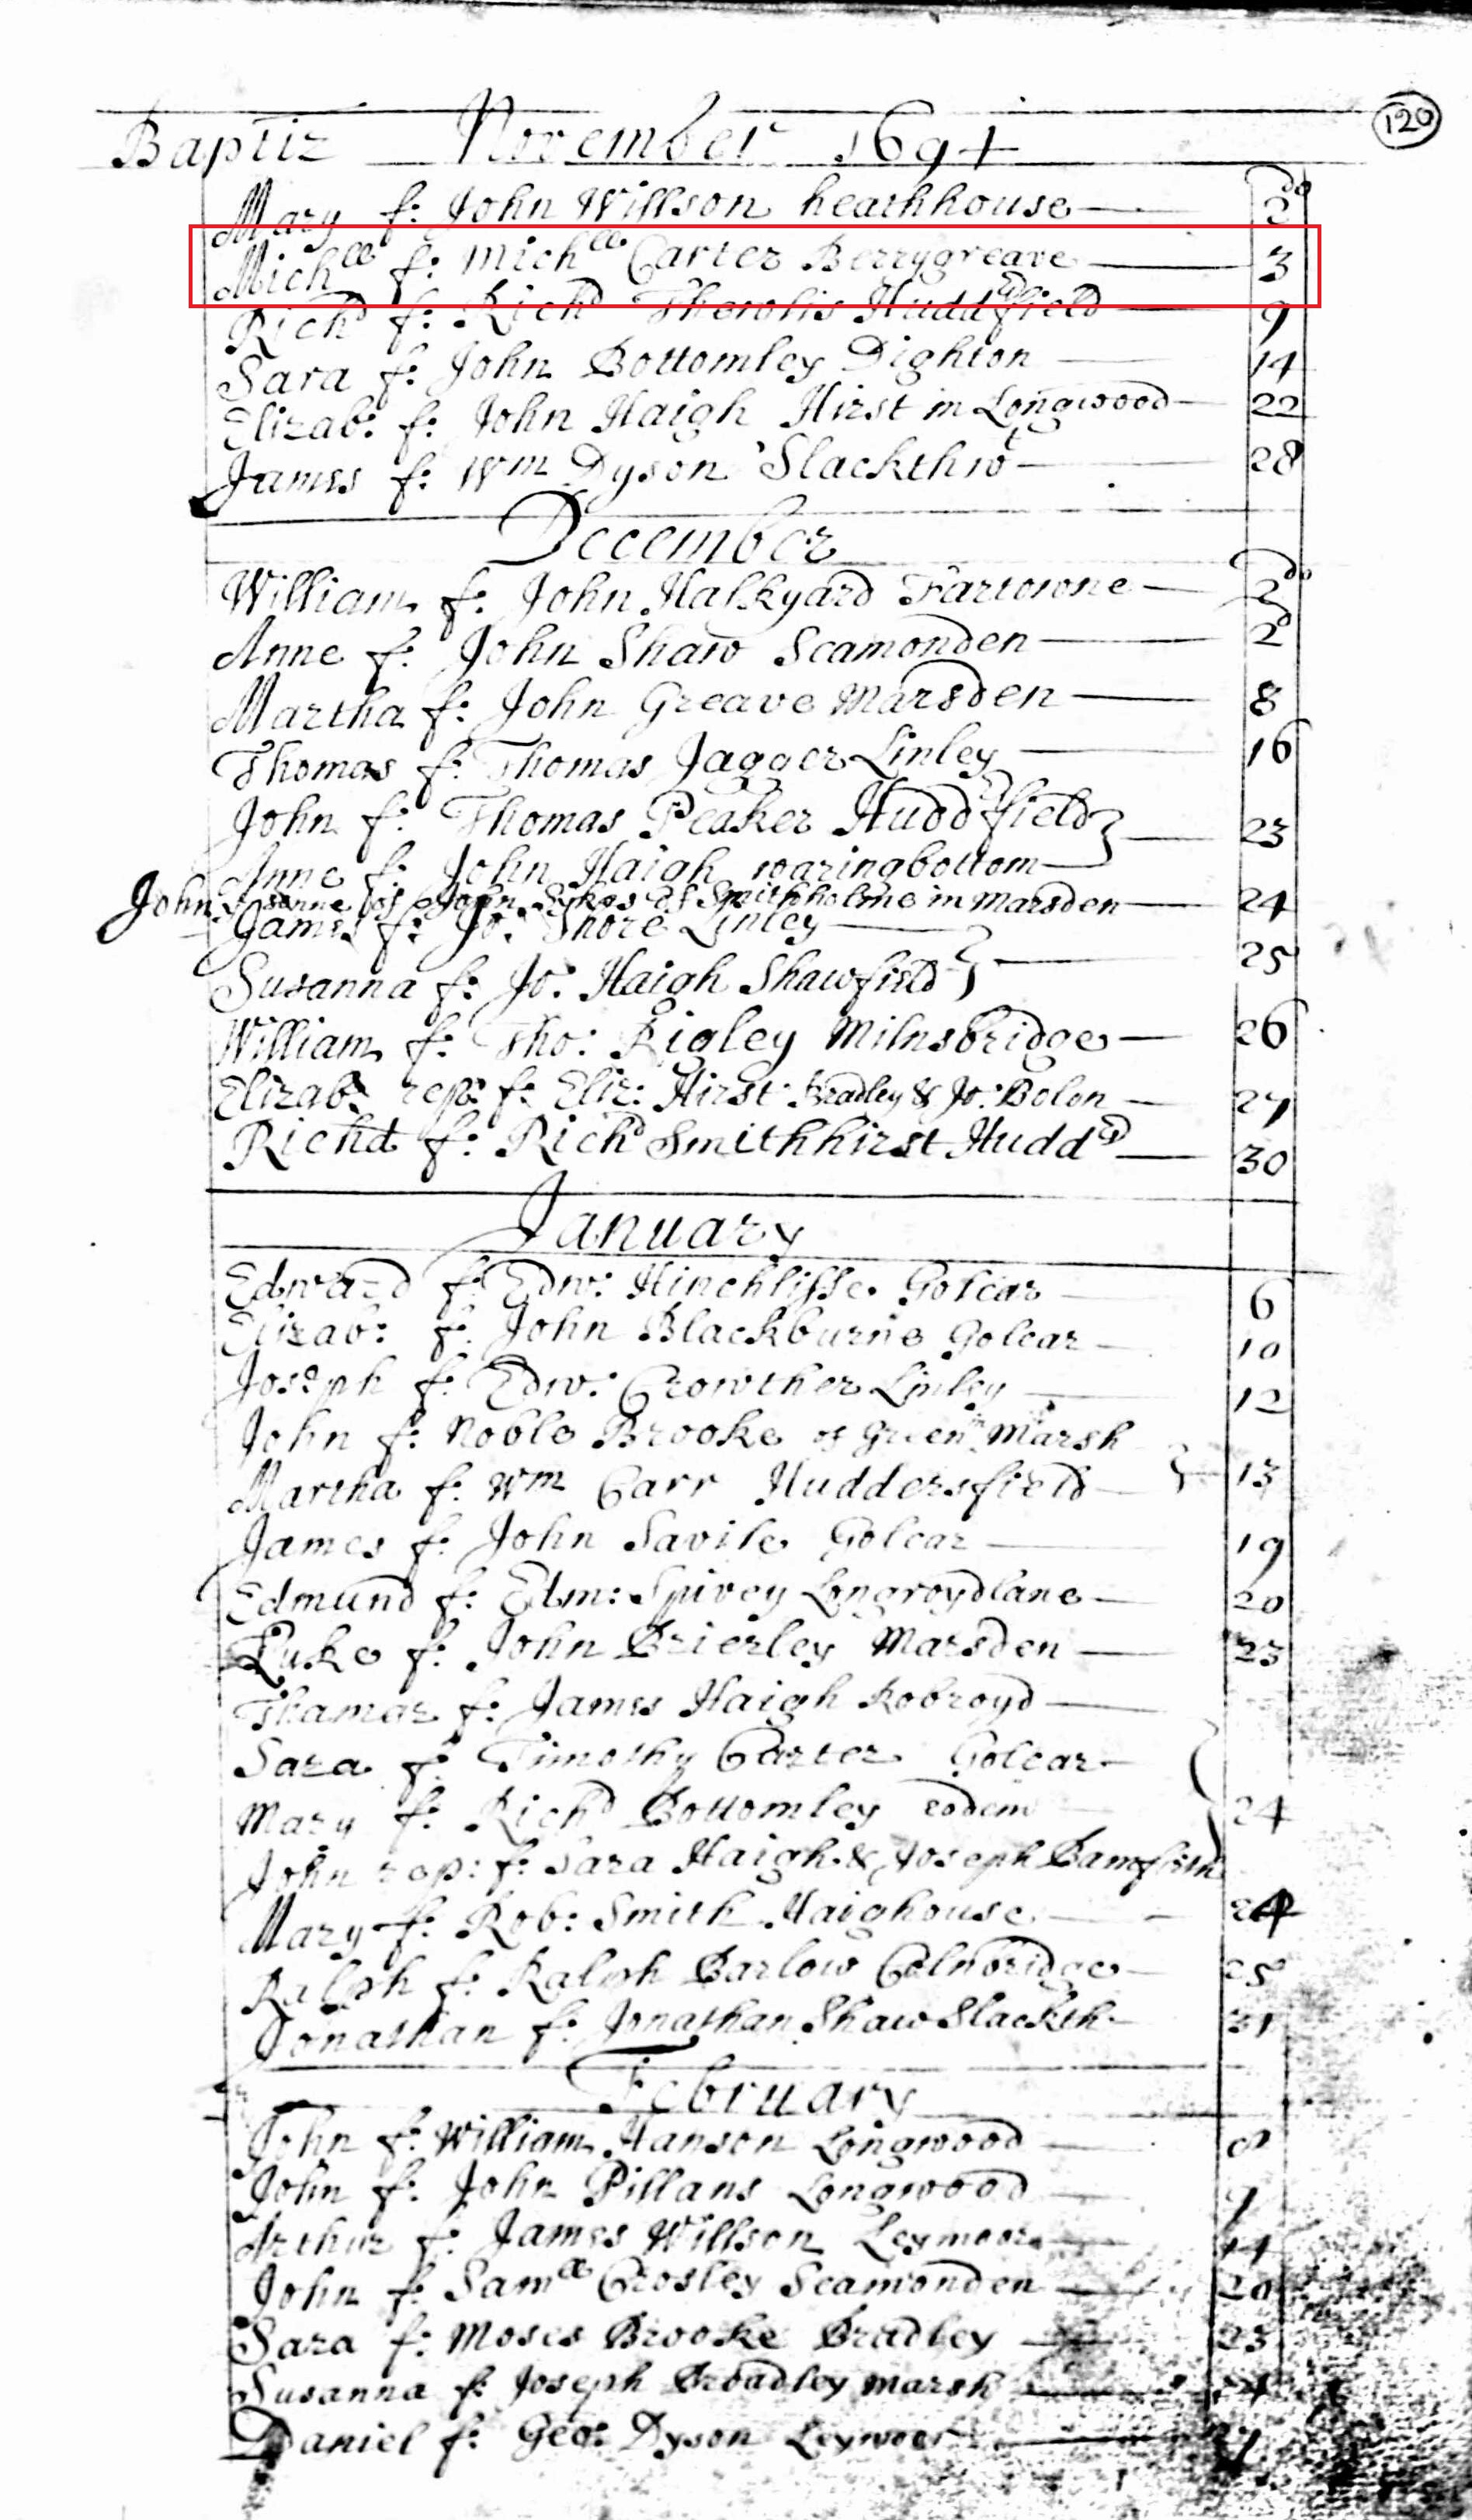 120
Baptiz November 1694
Mary f: John Willson heathhouse 2do
Michll f: Michll Carter Berrygreave 3
Richd f: Richd Huddsfield 9
Sara f: John Bottomley Dighton 14
Elizab: f: John Haigh Hirst in Longwood 22
James f: Wm Dyson Slackthwt 28
December
William f: John Halkyard Fartowne 2do
Anne f: John Shaw Scamonden 2d
Martha f: John Greave Marsden 8
Thomas f: Thomas Jagger Linley 16
John f: Thomas Peaker Huddsfield 23
Anne f: John Haigh waringbottom
John of John Sykes of Smithholme in Marsden 24
James f: Jo: Shore Linley
Susanna f: Jo: Haigh Shawfield 25
William f: Tho: Rigley Milnsbridge 26
Elizab: rep: f: Eliz: Hirst Bradley & Jo: Bolon 27
Richd f: Richd Smithhirst Hudds 30
January
Edward f: Edw: Hinchliffe Golcar 6
Elizab: f: John Blackburne Golcar 10
Joseph f: Edw: Crowther Linley 12
John f: Noble Brooke of Green in Marsh
Martha f: Wm Carr Huddersfield 13
James f: John Savile Golcar 19
Edmund f: Edm: Spivey Longroydlane 20
Luke f: John Brierley Marsden 23
Thamar f: James Haigh Robroyd
Sara f: Timothy Carter Golcar
Mary f: Richd Bottomley eodem 24
John rep: f: Sara Haigh & Joseph
Mary f: Rob: Smith Haighouse 24
Ralph f: Ralph Barlow Colnbridge 25
Jonathan f: Jonathan Shaw Slackth 31
February
John f: William Hanson Longwood 8
John f: John Pillans Longwood 9
Arthur f: James Willson Leymoor 14
John f: Samll Crosley Scamonden 20
Sara f: Moses Brooke Bradley 23
Susanna f: Joseph Broadley Marsh 24
Daniel f: Geo: Dyson Leymoor